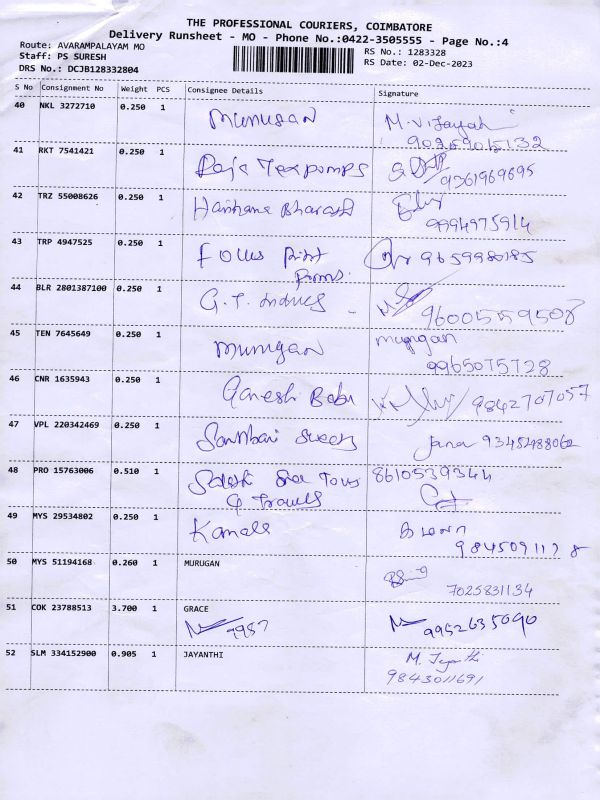 THE PROFESSIONAL COURIERS, COIMBATORE
Delivery Runsheet - MO - Phone No.:0422-3505555 - Page No.:4
Route: AVARAMPALAYAM MO
RS No.: 1283328
Staff: PS SURESH
RS Date: 02-Dec-2023
DRS No.: DCJB128332804
S No Consignment No Weight PCS Consignee Details Signature
40 NKL 3272710 0.250 1 Murugan M. Vijayah
41 RKT 7541421 0.250 1 Raja Tex pumps
9361969695
42 TRZ 55008626 0.250 1 Bharath
9994975914
43 TRP 4947525 0.250 1 Focus Print 9659980185
Forms.
44 BLR 2801387100 0.250 1 G.T. 
45 TEN 7645649 0.250 1 Murugan murugan
9965075728
46 CNR 1635943 0.250 1 Ganesh Babu 9842707057
47 VPL 220342469 0.250 1 Jana
48 PRO 15763006 0.510 1 Sree Tours 8610539344
& Travels
49 MYS 29534802 0.250 1 Kamala கமலா
50 MYS 51194168 0.260 1 MURUGAN
7025831134
51 COK 23788513 3.700 1 GRACE
9952635090
52 SLM 334152900 0.905 1 JAYANTHI M. Jayanthi
9843011691